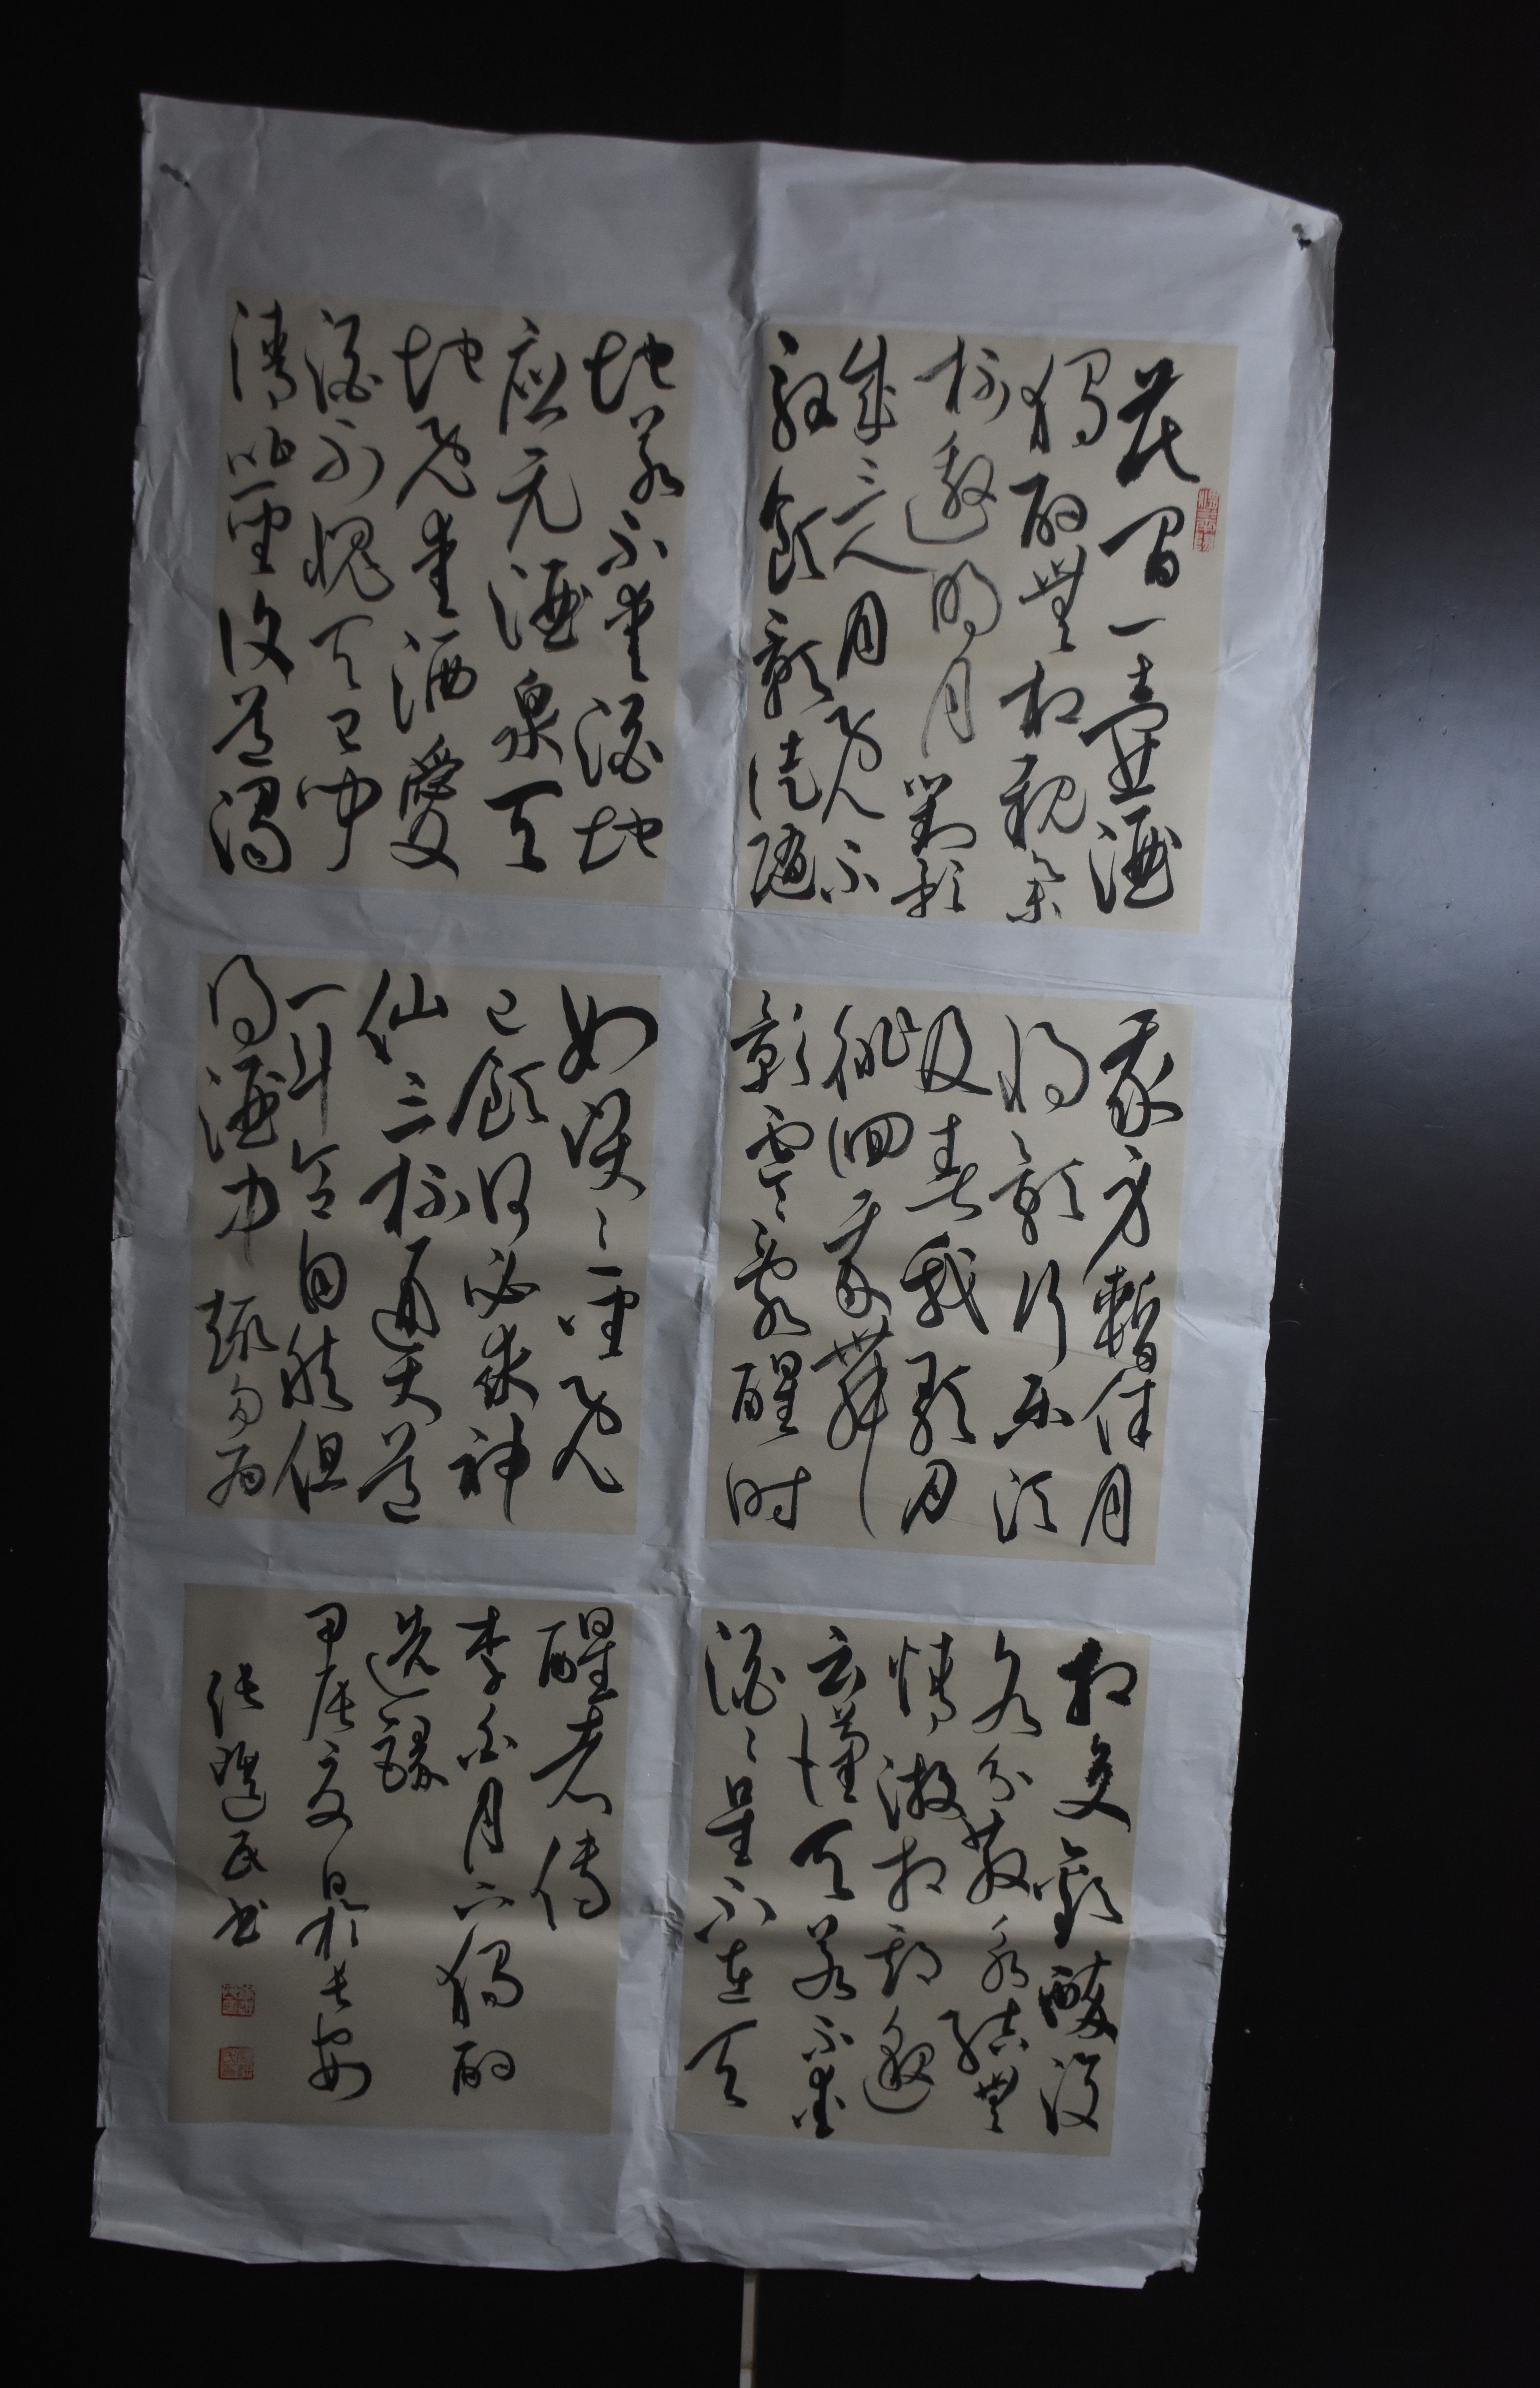 花間一壺酒
獨酌無相親舉
杯邀明月對影
成三人月既不
解飲影徒隨
我身暫伴月
將影行樂須
及春我歌月
徘徊我舞
影零亂醒時
相交歡醉後
各分散永結無
情遊相期邈
云漢天若不愛
酒〻星不在天
地若不愛酒地
應无酒泉天
地既愛酒愛
酒不愧天已聞
清比聖復道濁
如賢〻聖既
已飲何必求神
仙三杯通大道
一斗合自然但
得酒中趣勿為
醒者傳
李白月下獨酌
甲辰夏日於長安
張民书